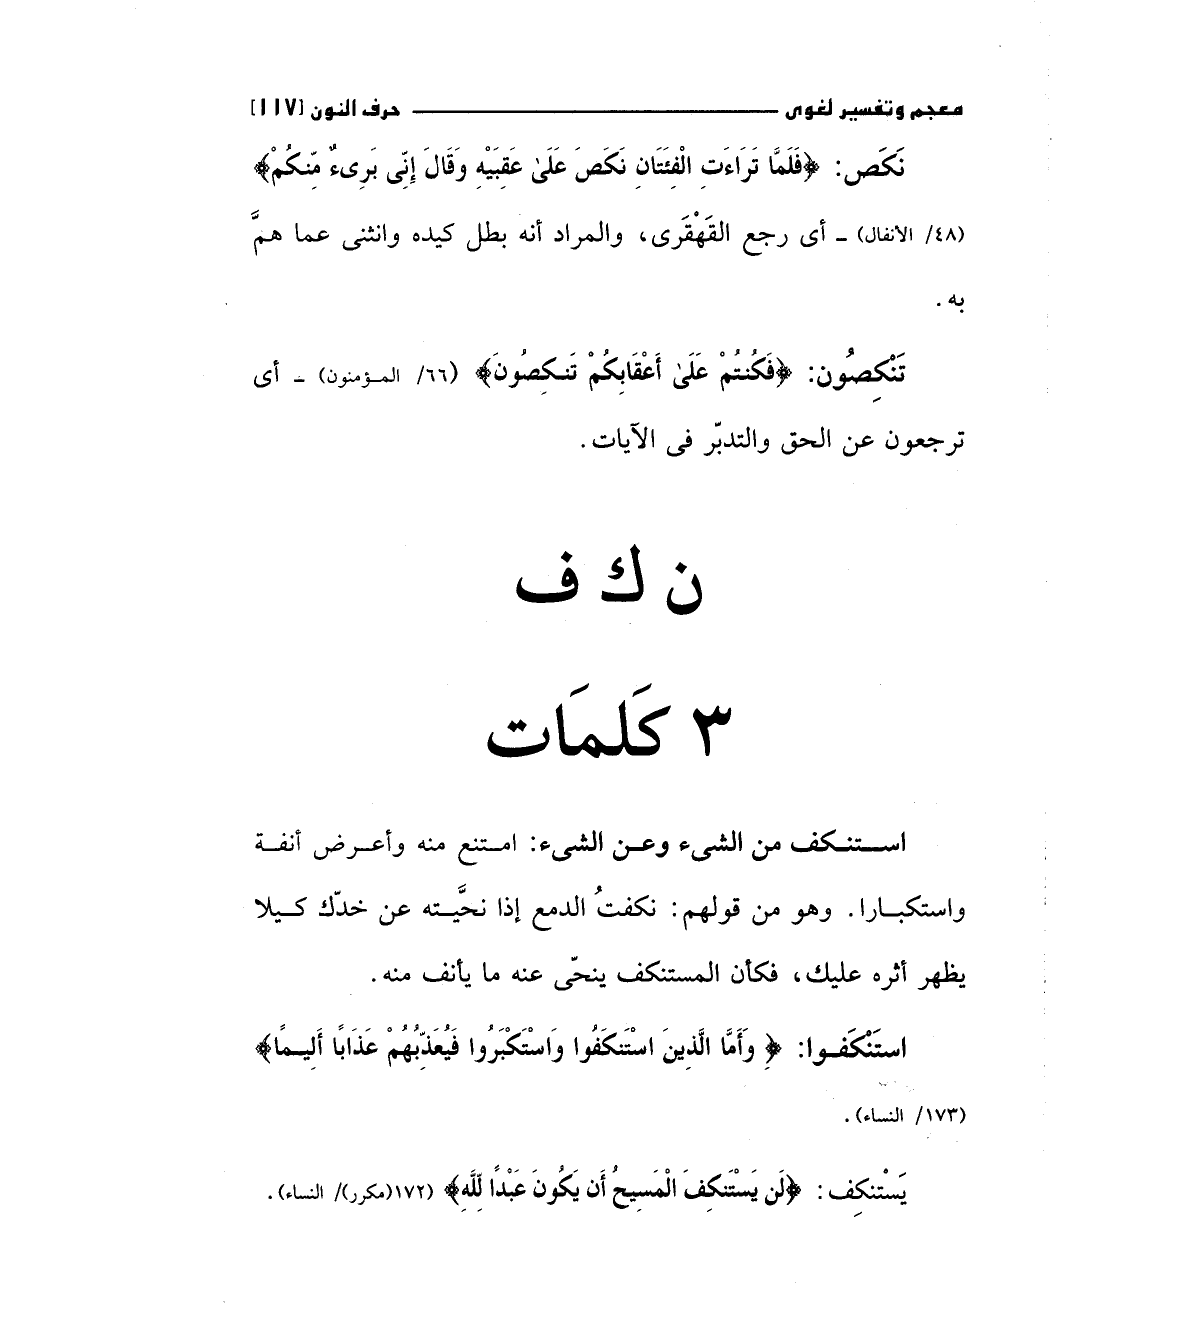 معجم وتفسير لغوى حرف النون [١١٧]
نَكَص: ﴿فَلَمَّا تَرَاءَتِ الْفِئَتَانِ نَكَصَ عَلَىٰ عَقِبَيْهِ وَقَالَ إِنِّى بَرِىءٌ مِّنكُمْ﴾
(٤٨/ الأنفال) ـ أى رجع القَهْقَرى، والمراد أنه بطل كيده وانثنى عما همَّ
به.
تَنْكِصُون: ﴿فَكُنتُمْ عَلَىٰ أَعْقَابِكُمْ تَنكِصُونَ﴾ (٦٦/ المؤمنون) ـ أى
ترجعون عن الحق والتدبّر فى الآيات.
ن ك ف
٣ كَلِمَات
استنكف من الشىء وعن الشىء: امتنع منه وأعرض أنفة
واستكبارا. وهو من قولهم: نكفتُ الدمع إذا نحَّيته عن خدّك كيلا
يظهر أثره عليك، فكأن المستنكف ينحّى عنه ما يأنف منه.
استَنْكَفوا: ﴿وَأَمَّا الَّذِينَ اسْتَنكَفُوا وَاسْتَكْبَرُوا فَيُعَذِّبُهُمْ عَذَابًا أَلِيمًا﴾
(١٧٣/ النساء).
يَسْتنكِف: ﴿لَن يَسْتَنكِفَ الْمَسِيحُ أَن يَكُونَ عَبْدًا لِّلَّهِ﴾ (١٧٢(مكرر)/ النساء).